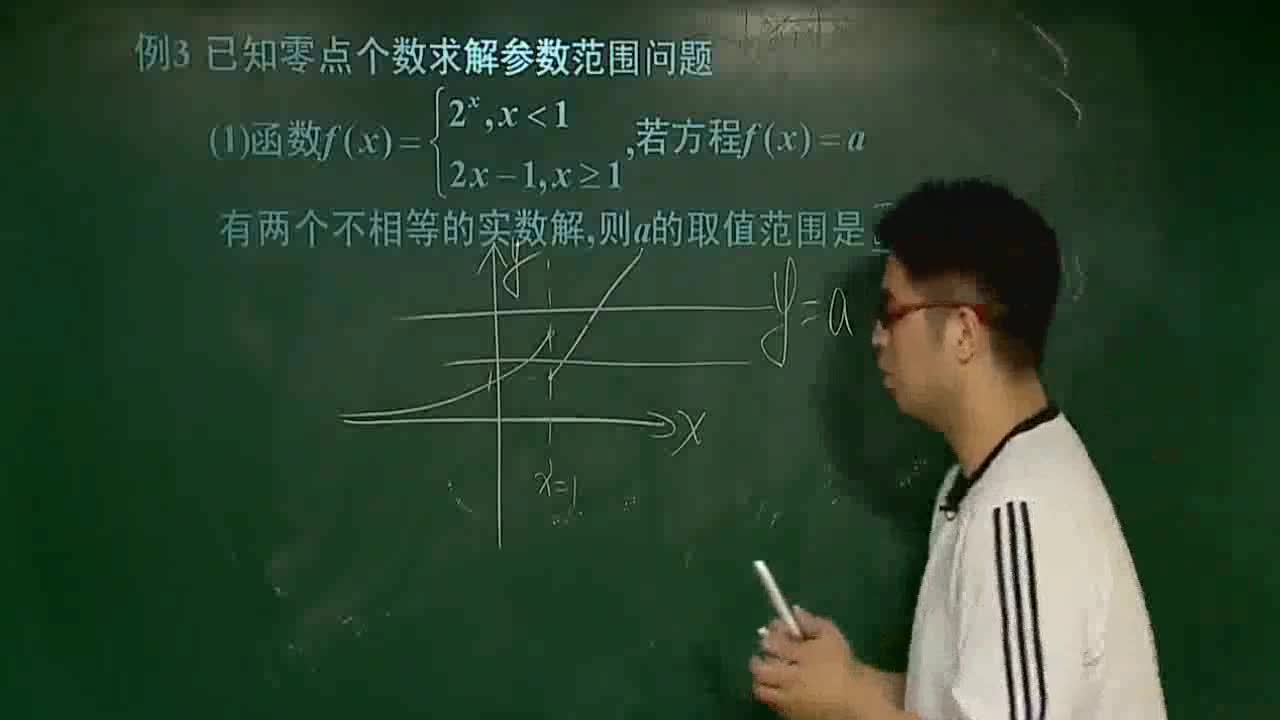 例3 已知零点个数求解参数范围问题
(1)函数f(x)={2^x, x<1
2x-1, x≥1
,若方程f(x)=a
有两个不相等的实数解,则a的取值范围是
y
y=a
x
x=1